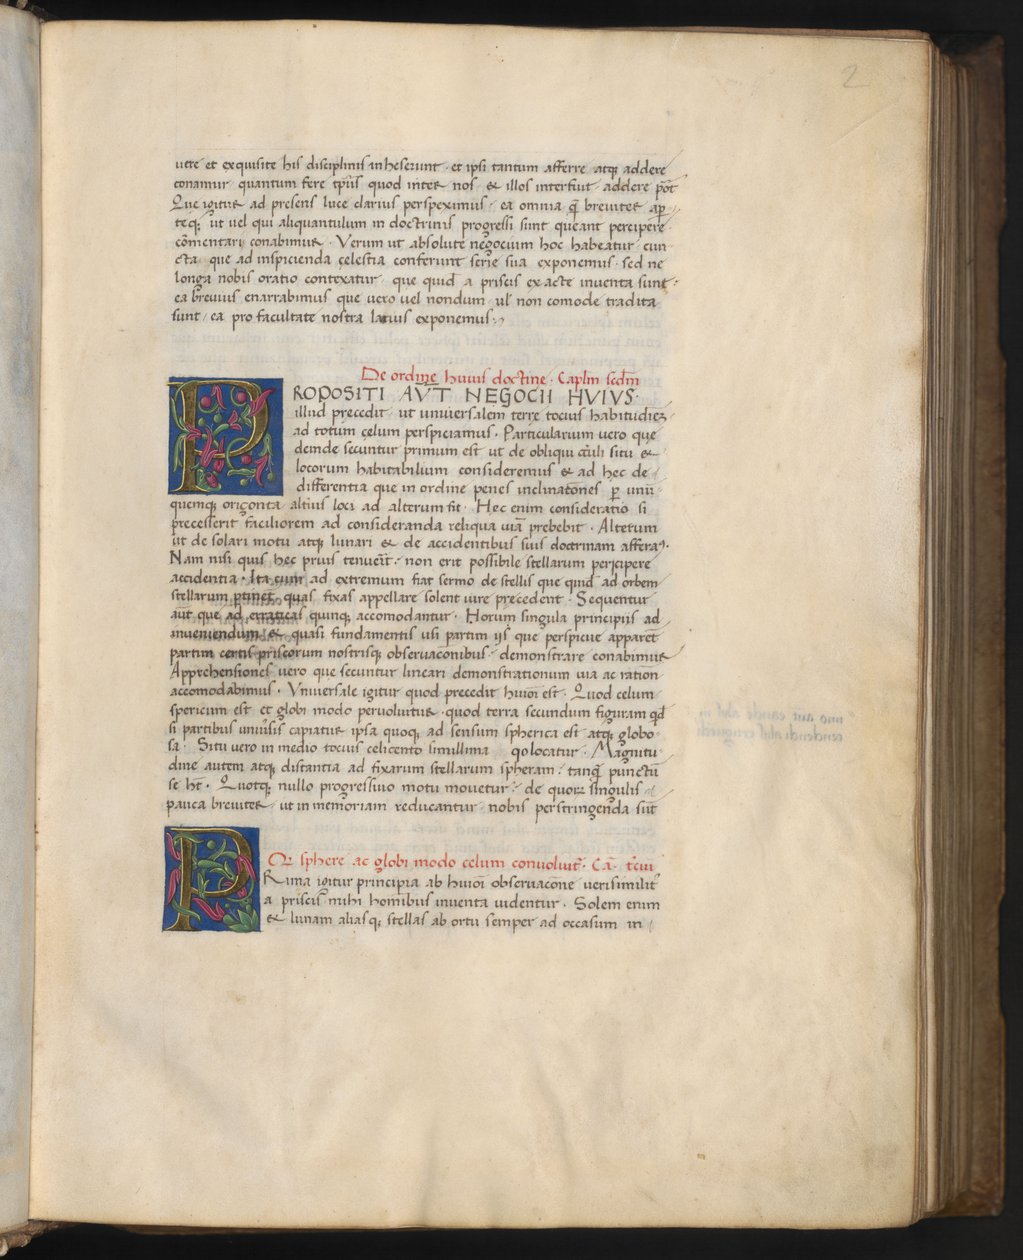 2
uere et exquisite his disciplinis inheserunt · et ipsi tantum afferre atq; addere
conamur quantum fere tp̄is quod inter nos & illos interfuit addere pōt
Que igitur ad presens luce clarius perspeximus · ea omnia q̄ breuiter ap
teq; ut uel qui aliquantulum in doctrinis progressi sunt queant percipere
cōmentari conabimur · Verum ut absolute negocium hoc habeatur cun
cta que ad inspicienda celestia conferunt serie sua exponemus · sed ne
longa nobis oratio contexatur que quid a priscis exacte inuenta sunt
ea breuius enarrabimus que uero uel nondum ul' non comode tradita
sunt ea pro facultate nostra latius exponemus
De ordine huius doctine · Caplm scdm
PROPOSITI AVT NEGOCII HVIVS·
illud precedit ut uniuersalem terre tocius habitudiez
ad totum celum perspiciamus · Particularium uero que
deinde secuntur primum est ut de obliqui cīuli situ &
locorum habitabilium consideremus & ad hec de
differentia que in ordine penes inclinatōnes p̱ unū
quemq; oriçonta altius loci ad alterum fit · Hec enim consideratio si
precesserit faciliorem ad consideranda reliqua uiā prebebit · Alterum
ut de solari motu atq; lunari & de accidentibus suis doctrinam afferat ·
Nam nisi quis hec prius tenuerīt · non erit possibile stellarum percipere
accidentia · Ita cum ad extremum fiat sermo de stellis que quid ad orbem
stellarum p̱tinet quas fixas appellare solent iure precedent · Sequentur
aūt que ad erraticas quinq; accomodantur · Horum singula principiis ad
inueniendum & quasi fundamentis usi partim iis que perspicue apparēt
partim certis priscorum nostrisq; obseruacōnibus · demonstrare conabimur
Apprehensiones uero que secuntur lineari demonstrationum uia ac ratiōn
accomodabimus · Vniuersale igitur quod precedit huiōi est · Quod celum
spericum est et globi modo peruoluitur · quod terra secundum figuram qd
si partibus uniūsis capiatur ipsa quoq; ad sensum spherica est atq; globo
sa · Situ uero in medio tocius celi cento simillima qolocatur · Magnitu
dine autem atq; distantia ad fixarum stellarum spheram · tanq̄ punctū
se ht̄ · Quotq; nullo progressiuo motu mouetur · de quorz singulis
pauca breuiter ut in memoriam reducantur nobis perstringenda sūt
Qr sphere ac globi modo celum conuoluit̄ · Ca · t̄cui
PRima igitur principia ab huiōi obseruacōne uerisimilit
a priscis mihi hominibus inuenta uidentur · Solem enim
& lunam aliasq; stellas ab ortu semper ad occasum in